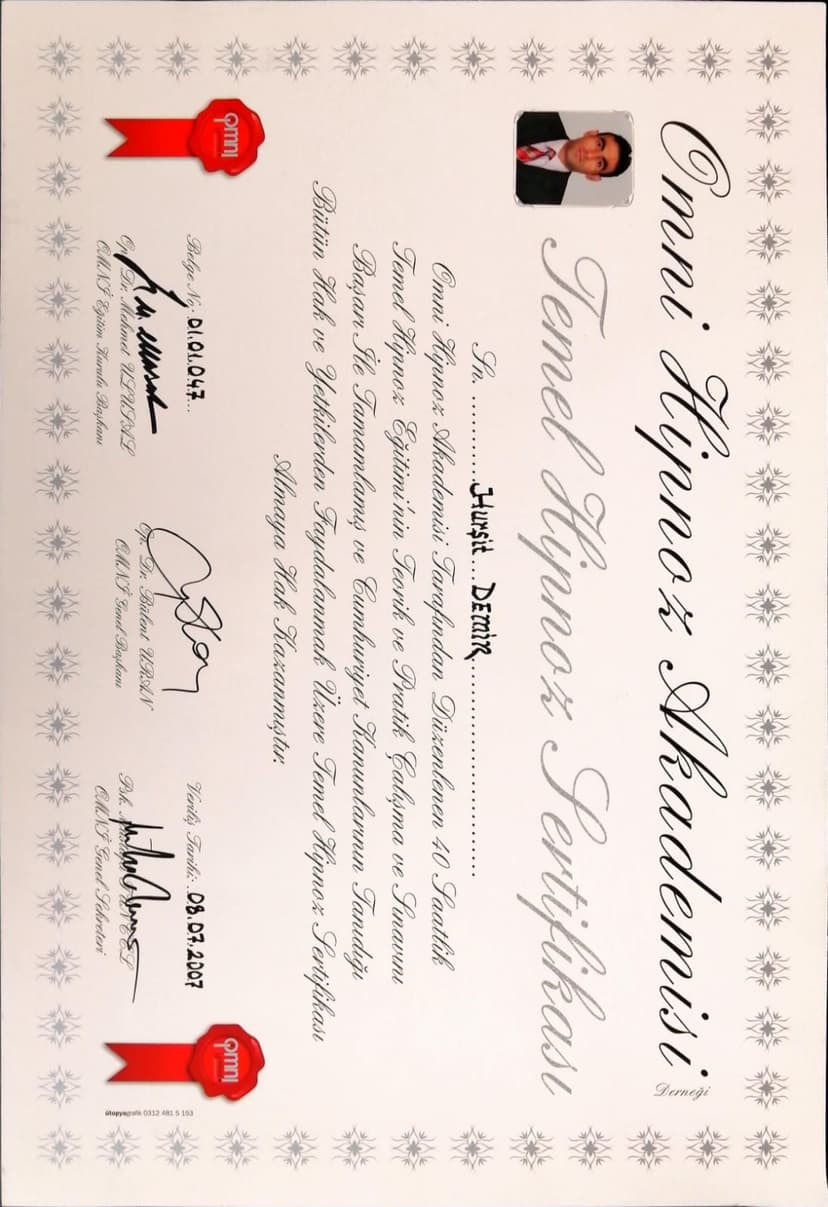 Omni Hipnoz Akademisi
Derneği
Temel Hipnoz Sertifikası
Sn. ............Hurşit...DEMİR..............................
Omni Hipnoz Akademisi Tarafından Düzenlenen 40 Saatlik
Temel Hipnoz Eğitimi'nin Teorik ve Pratik Çalışma ve Sınavını
Başarı İle Tamamlamış ve Cumhuriyet Kanunlarının Tanıdığı
Bütün Hak ve Yetkilerden Faydalanmak Üzere Temel Hipnoz Sertifikası
Almaya Hak Kazanmıştır.
omni
omni
Belge No: 01.01.047...
Veriliş Tarihi: .08.07.2007
Op. Dr. Mehmet
OMNİ Eğitim Kurulu Başkanı
Op. Dr. Bülent URAN
OMNİ Genel Başkanı
Psk.
OMNİ Genel Sekreteri
ütopyagrafik 0312 481 5 153